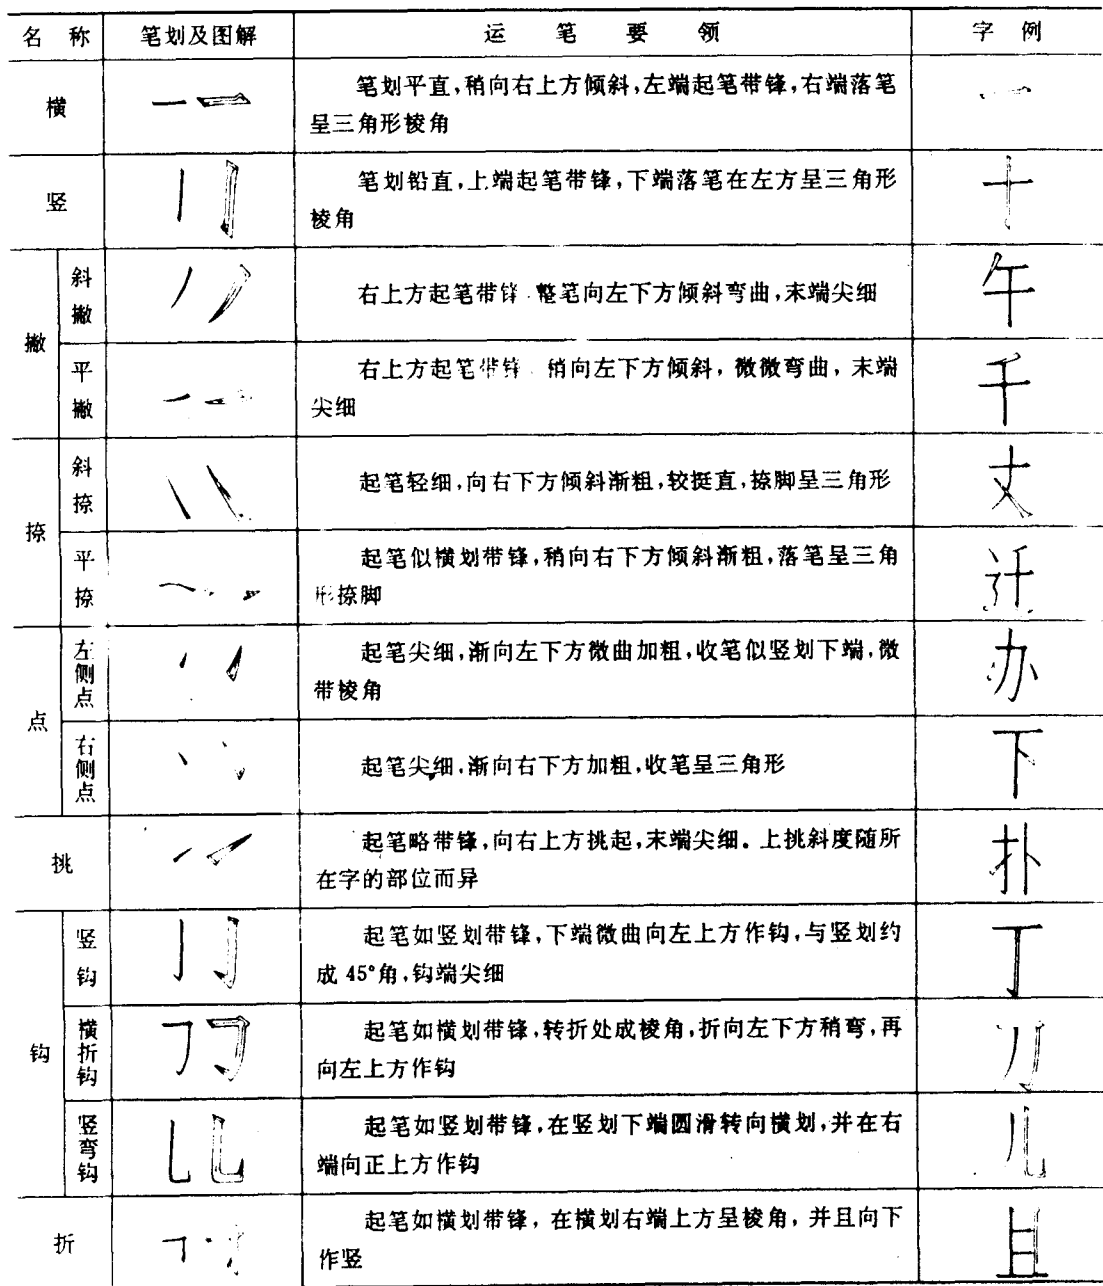 名 称 笔划及图解 运 笔 要 领 字 例
横
笔划平直,稍向右上方倾斜,左端起笔带锋,右端落笔
呈三角形棱角
一
竖
笔划铅直,上端起笔带锋,下端落笔在左方呈三角形
棱角
十
撇
斜撇
右上方起笔带锋 整笔向左下方倾斜弯曲,末端尖细
午
平撇
右上方起笔带锋 稍向左下方倾斜,微微弯曲,末端
尖细
千
捺
斜捺
起笔轻细,向右下方倾斜渐粗,较挺直,捺脚呈三角形
丈
平捺
起笔似横划带锋,稍向右下方倾斜渐粗,落笔呈三角
形捺脚
迁
点
左侧点
起笔尖细,渐向左下方微曲加粗,收笔似竖划下端,微
带棱角
办
右侧点
起笔尖细,渐向右下方加粗,收笔呈三角形
下
挑
起笔略带锋,向右上方挑起,末端尖细。上挑斜度随所
在字的部位而异
扑
钩
竖钩
起笔如竖划带锋,下端微曲向左上方作钩,与竖划约
成 45°角,钩端尖细
丁
横折钩
起笔如横划带锋,转折处成棱角,折向左下方稍弯,再
向左上方作钩
刀
竖弯钩
起笔如竖划带锋,在竖划下端圆滑转向横划,并在右
端向正上方作钩
儿
折
起笔如横划带锋,在横划右端上方呈棱角,并且向下
作竖
且